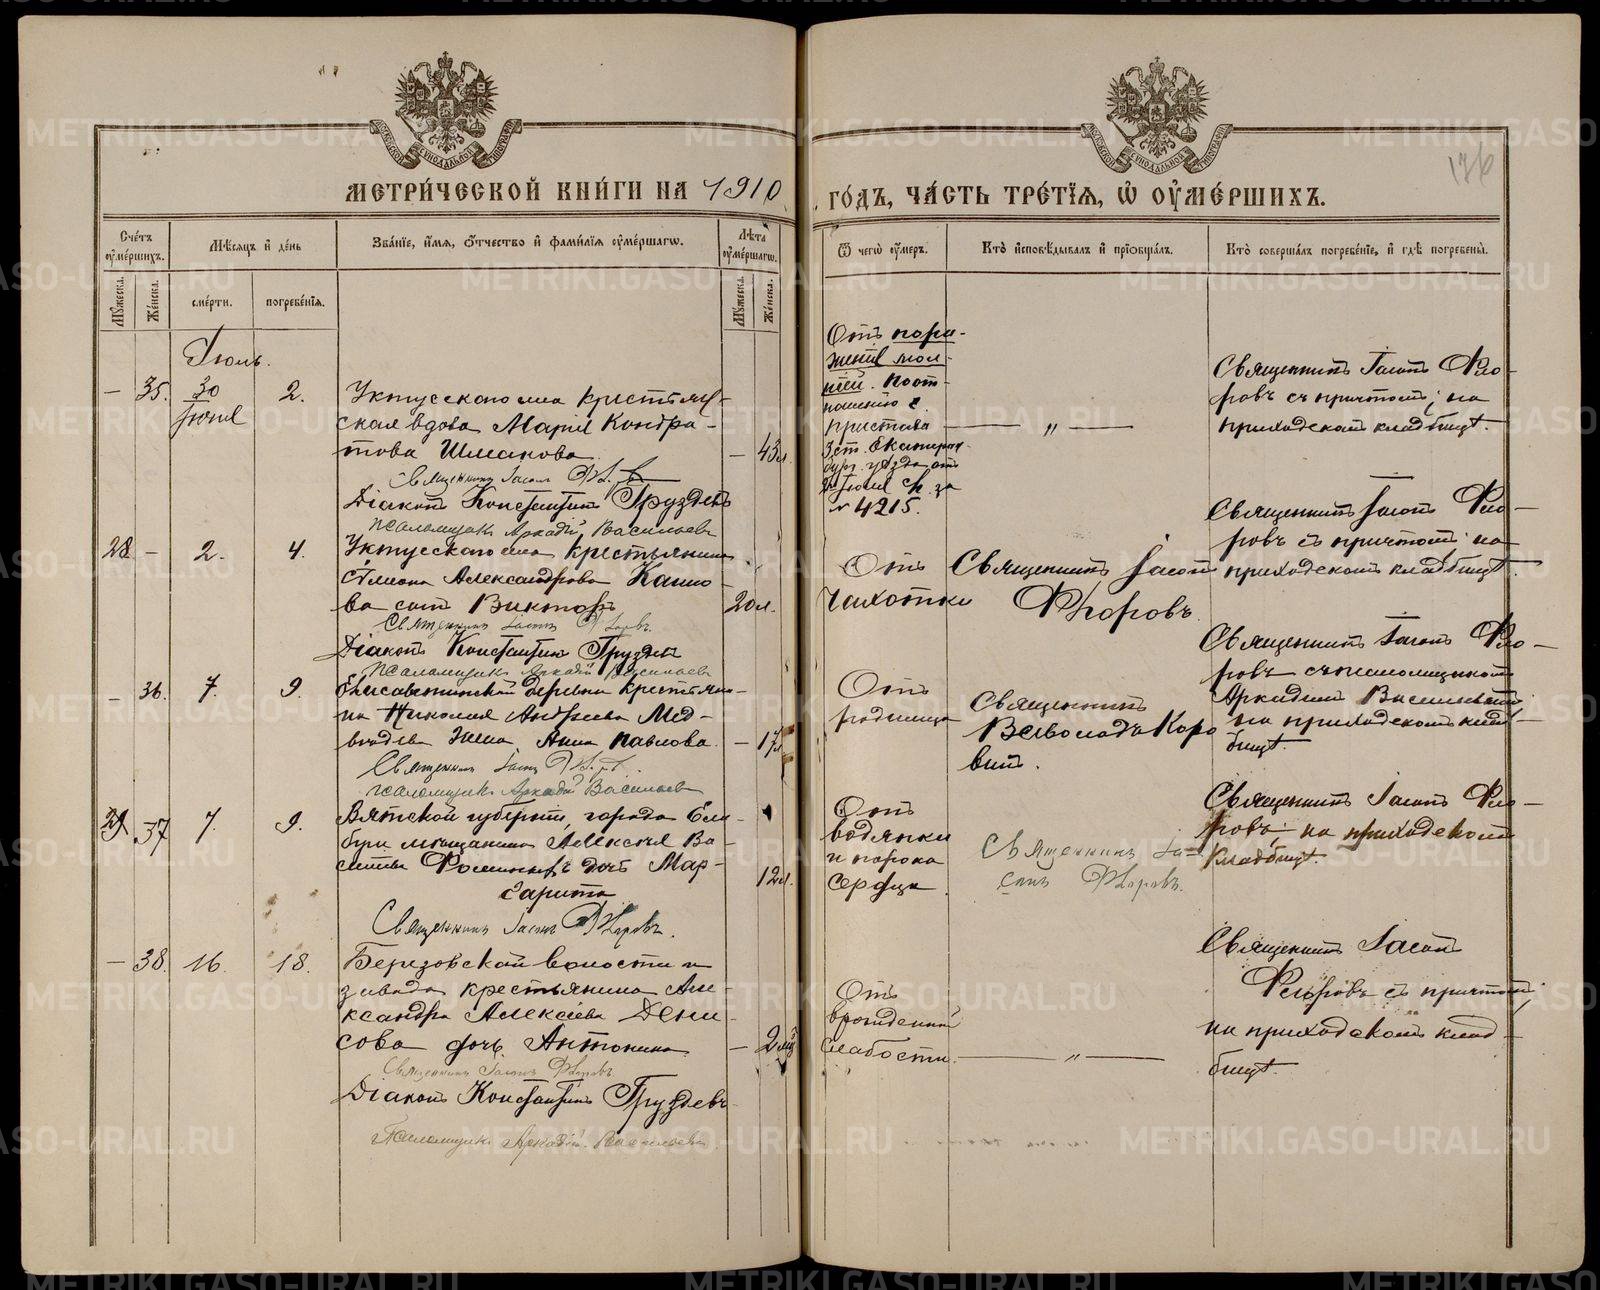 МЕТРИ́ЧЕСКОЙ КНИ́ГИ НА 1910
ГО́ДЪ, ЧА́СТЬ ТРЕ́ТІЯ, Ѡ҆ ОУ҆МЕ́РШИХЪ.
136
Сче́тъ оу҆ме́ршихъ.
Мѣ́сяцъ и҆ де́нь
Зва́нїе, и҆́мя, ѻ҆́тчество и҆ фами́лїя оу҆ме́ршагѡ.
Лѣ́та оу҆ме́ршагѡ.
Ѿ чегѡ̀ оу҆́меръ.
Кто̀ и҆сповѣ́дывалъ и҆ прїѡбща́лъ.
Кто̀ соверша́лъ погребе́нїе, и҆ гдѣ̀ погребены̀.
Мꙋ́жеска.
Же́нска.
сме́рти.
погребе́нїя.
Мꙋ́жеска.
Же́нска.
Іюль.
— 35. 30 Іюня 2.
Уктусскаго села крестьян-
ская вдова Марія Кондра-
това Шмакова
— 43 л.
Священникъ Іасонъ Флоровъ
Діаконъ Константинъ Груздевъ
Псаломщикъ Аркадій Васильевъ
Отъ пора-
женія мол-
ніей. По от-
ношенію г.
пристава
3 ст. Екатерин-
бург. уѣзда отъ
Іюля за
№ 4215.
— „ —
Священникъ Іасонъ Фло-
ровъ съ причтомъ; на
приходскомъ кладбищѣ.
28 — 2. 4.
Уктусскаго села крестьянина
Александрова
ва сынъ Викторъ
20 л.
Священникъ Іасонъ Флоровъ.
Діаконъ Константинъ Груздевъ
Псаломщикъ Аркадій Васильевъ
Отъ
чахотки
Священникъ Іасонъ
Флоровъ.
Священникъ Іасонъ Фло-
ровъ съ причтомъ на
приходскомъ кладбищѣ.
— 36. 7. 9.
Елисаветинской деревни крестьяни-
на Николая Андреева Мед-
вѣдева жена Анна Павлова.
— 17 л.
Священникъ Іасонъ Флоровъ.
Псаломщикъ Аркадій Васильевъ
Отъ
родимца
Священникъ
Всеволодъ Коро
винъ.
Священникъ Іасонъ Фло-
ровъ съ псаломщикомъ
Аркадіемъ Васильевымъ
на приходскомъ клад-
бищѣ.
29 37 7. 9.
Вятской губерніи, города Ела-
буги мѣщанина Алексѣя Ва-
дочь Мар-
гарита
12 л.
Священникъ Іасонъ Флоровъ.
Отъ
водянки
и порока
сердца.
Священникъ Іа-
сонъ Флоровъ.
Священникъ Іасонъ Фло-
ровъ на приходскомъ
кладбищѣ.
— 38. 16. 18.
Березовской волости и
завода крестьянина Але-
ксандра Алексѣева Дени-
сова дочь Антонина
— 2 мѣ
Священникъ Іасонъ Флоровъ.
Діаконъ Константинъ Груздевъ
Псаломщикъ Аркадій Васильевъ
Отъ
врожденной
слабости.
— „ —
Священникъ Іасонъ
Флоровъ съ причтомъ;
на приходскомъ клад-
бищѣ.
METRIKI.GASO-URAL.RU